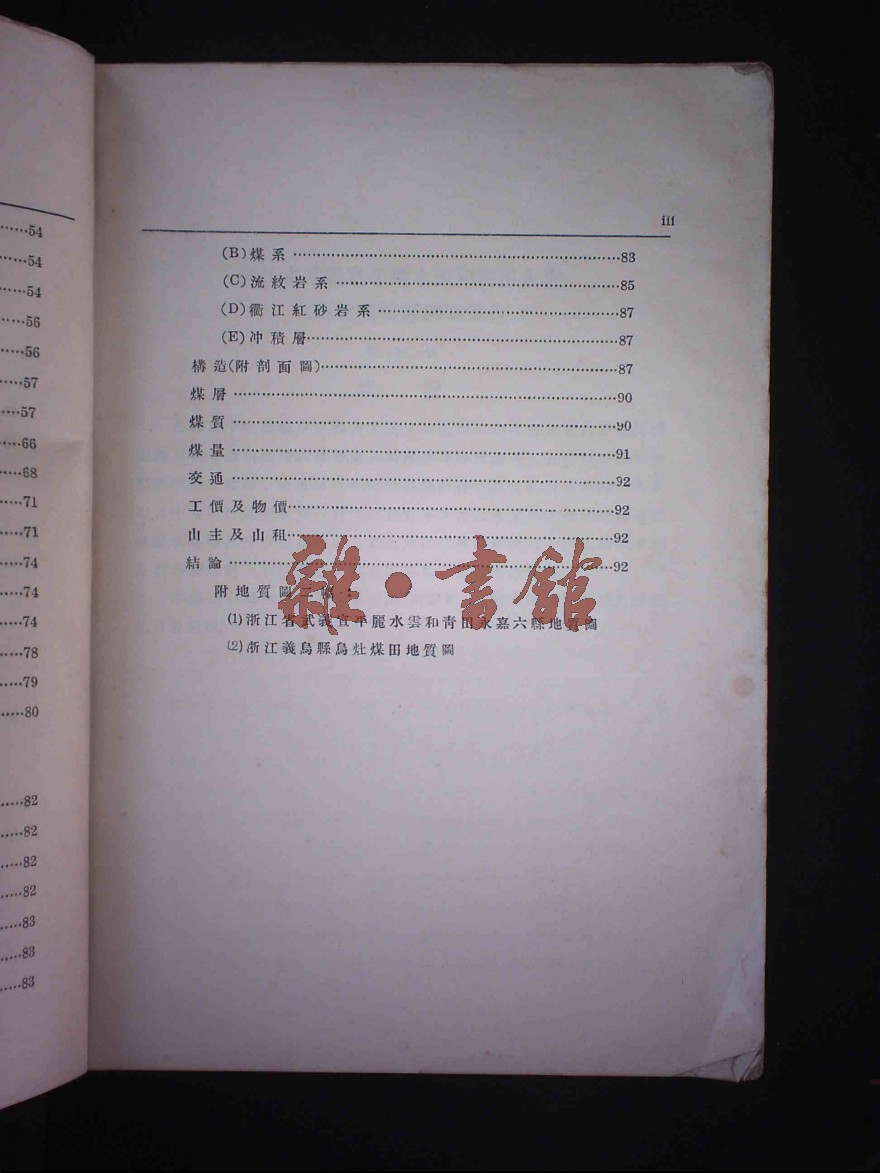 ……54
……54
……54
……56
……56
……57
……57
……66
……68
……71
……71
……74
……74
……74
……78
……79
……80
……82
……82
……82
……82
……83
……83
……83
iii
(B)煤系……83
(C)流紋岩系……85
(D)衢江紅砂岩系……87
(E)冲積層……87
構造(附剖面圖)……87
煤層……90
煤質……90
煤量……91
交通……92
工價及物價……92
山主及山租……92
結論……92
附地質圖二幅：
(1)浙江省武義宣平麗水雲和靑田永嘉六縣地質圖
(2)浙江義烏縣烏灶煤田地質圖
雜·書館